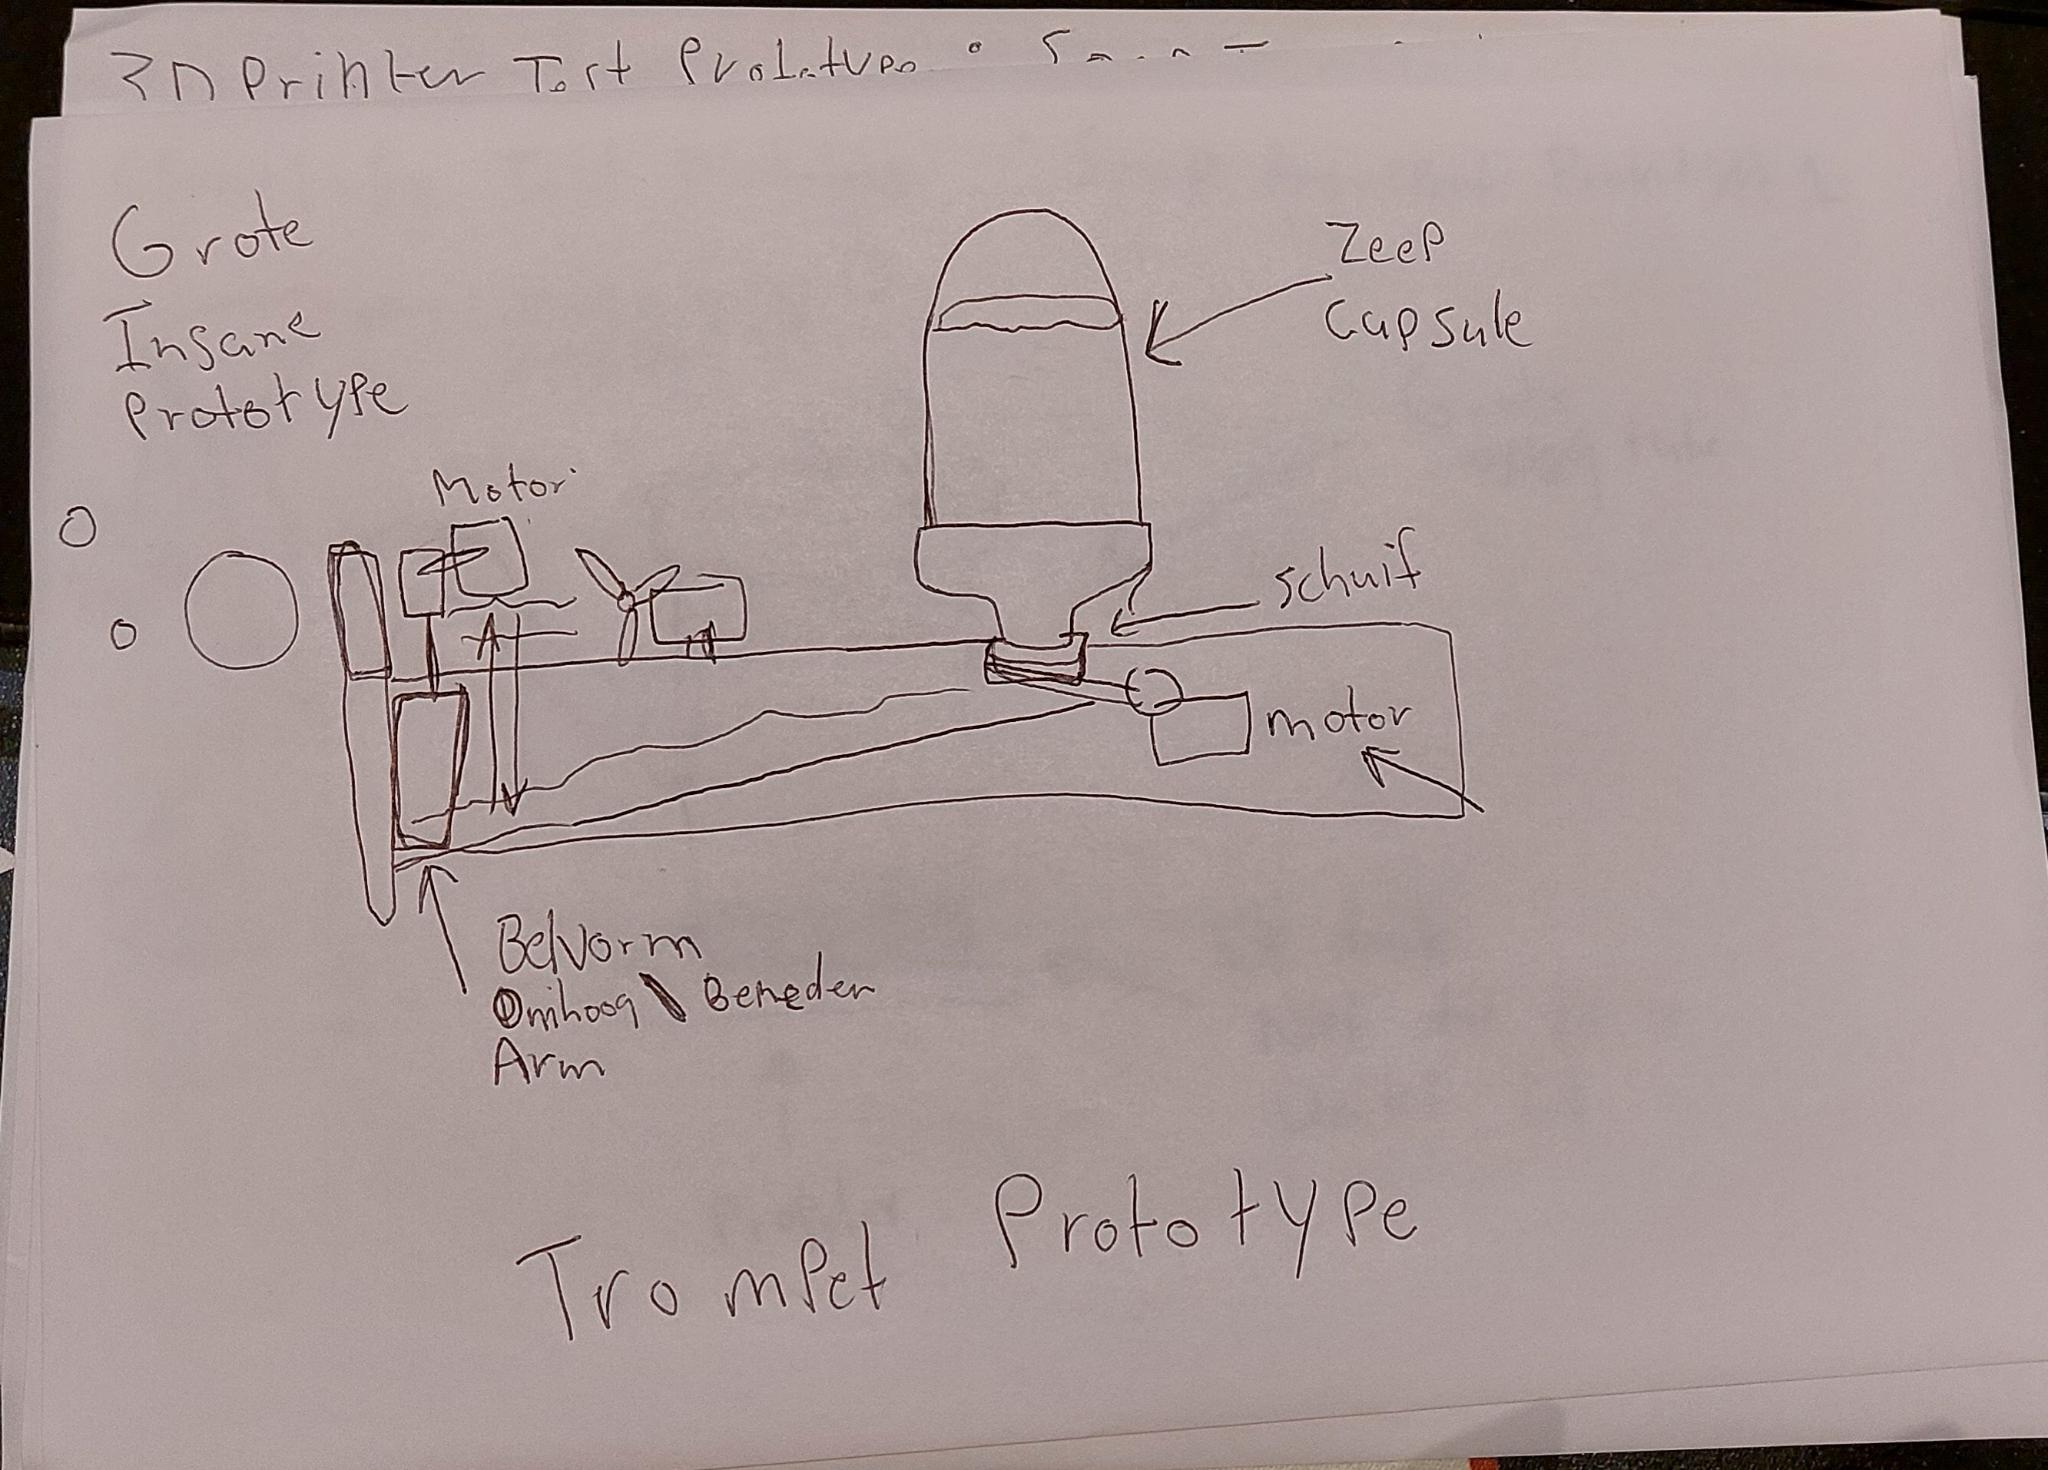 3D Printer Test Prototype
Grote
Insane
Prototype
Zeep
Capsule
Motor
schuif
motor
Belvorm
Omhoog \ Beneden
Arm
Trompet Prototype